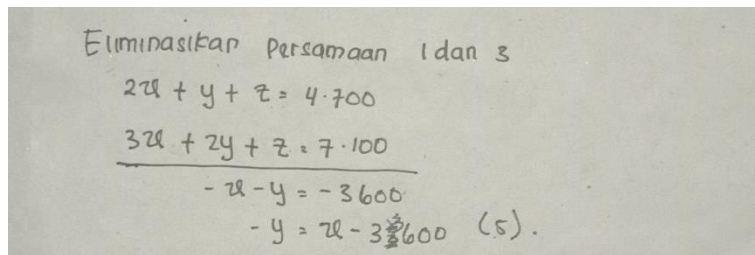 Eliminasikan Persamaan 1 dan 3
2x + y + z = 4.700
3x + 2y + z = 7.100
- x - y = - 3600
- y = x - 3600 (5).